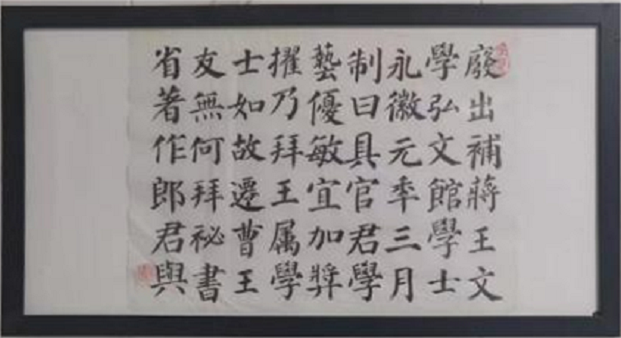 廢出補蔣王文
學弘文館學士
永徽元秊三月
制曰具官君學
藝優敏宜加獎
擢乃拜王属學
士如故遷曹王
友無何拜祕書
省著作郎君與